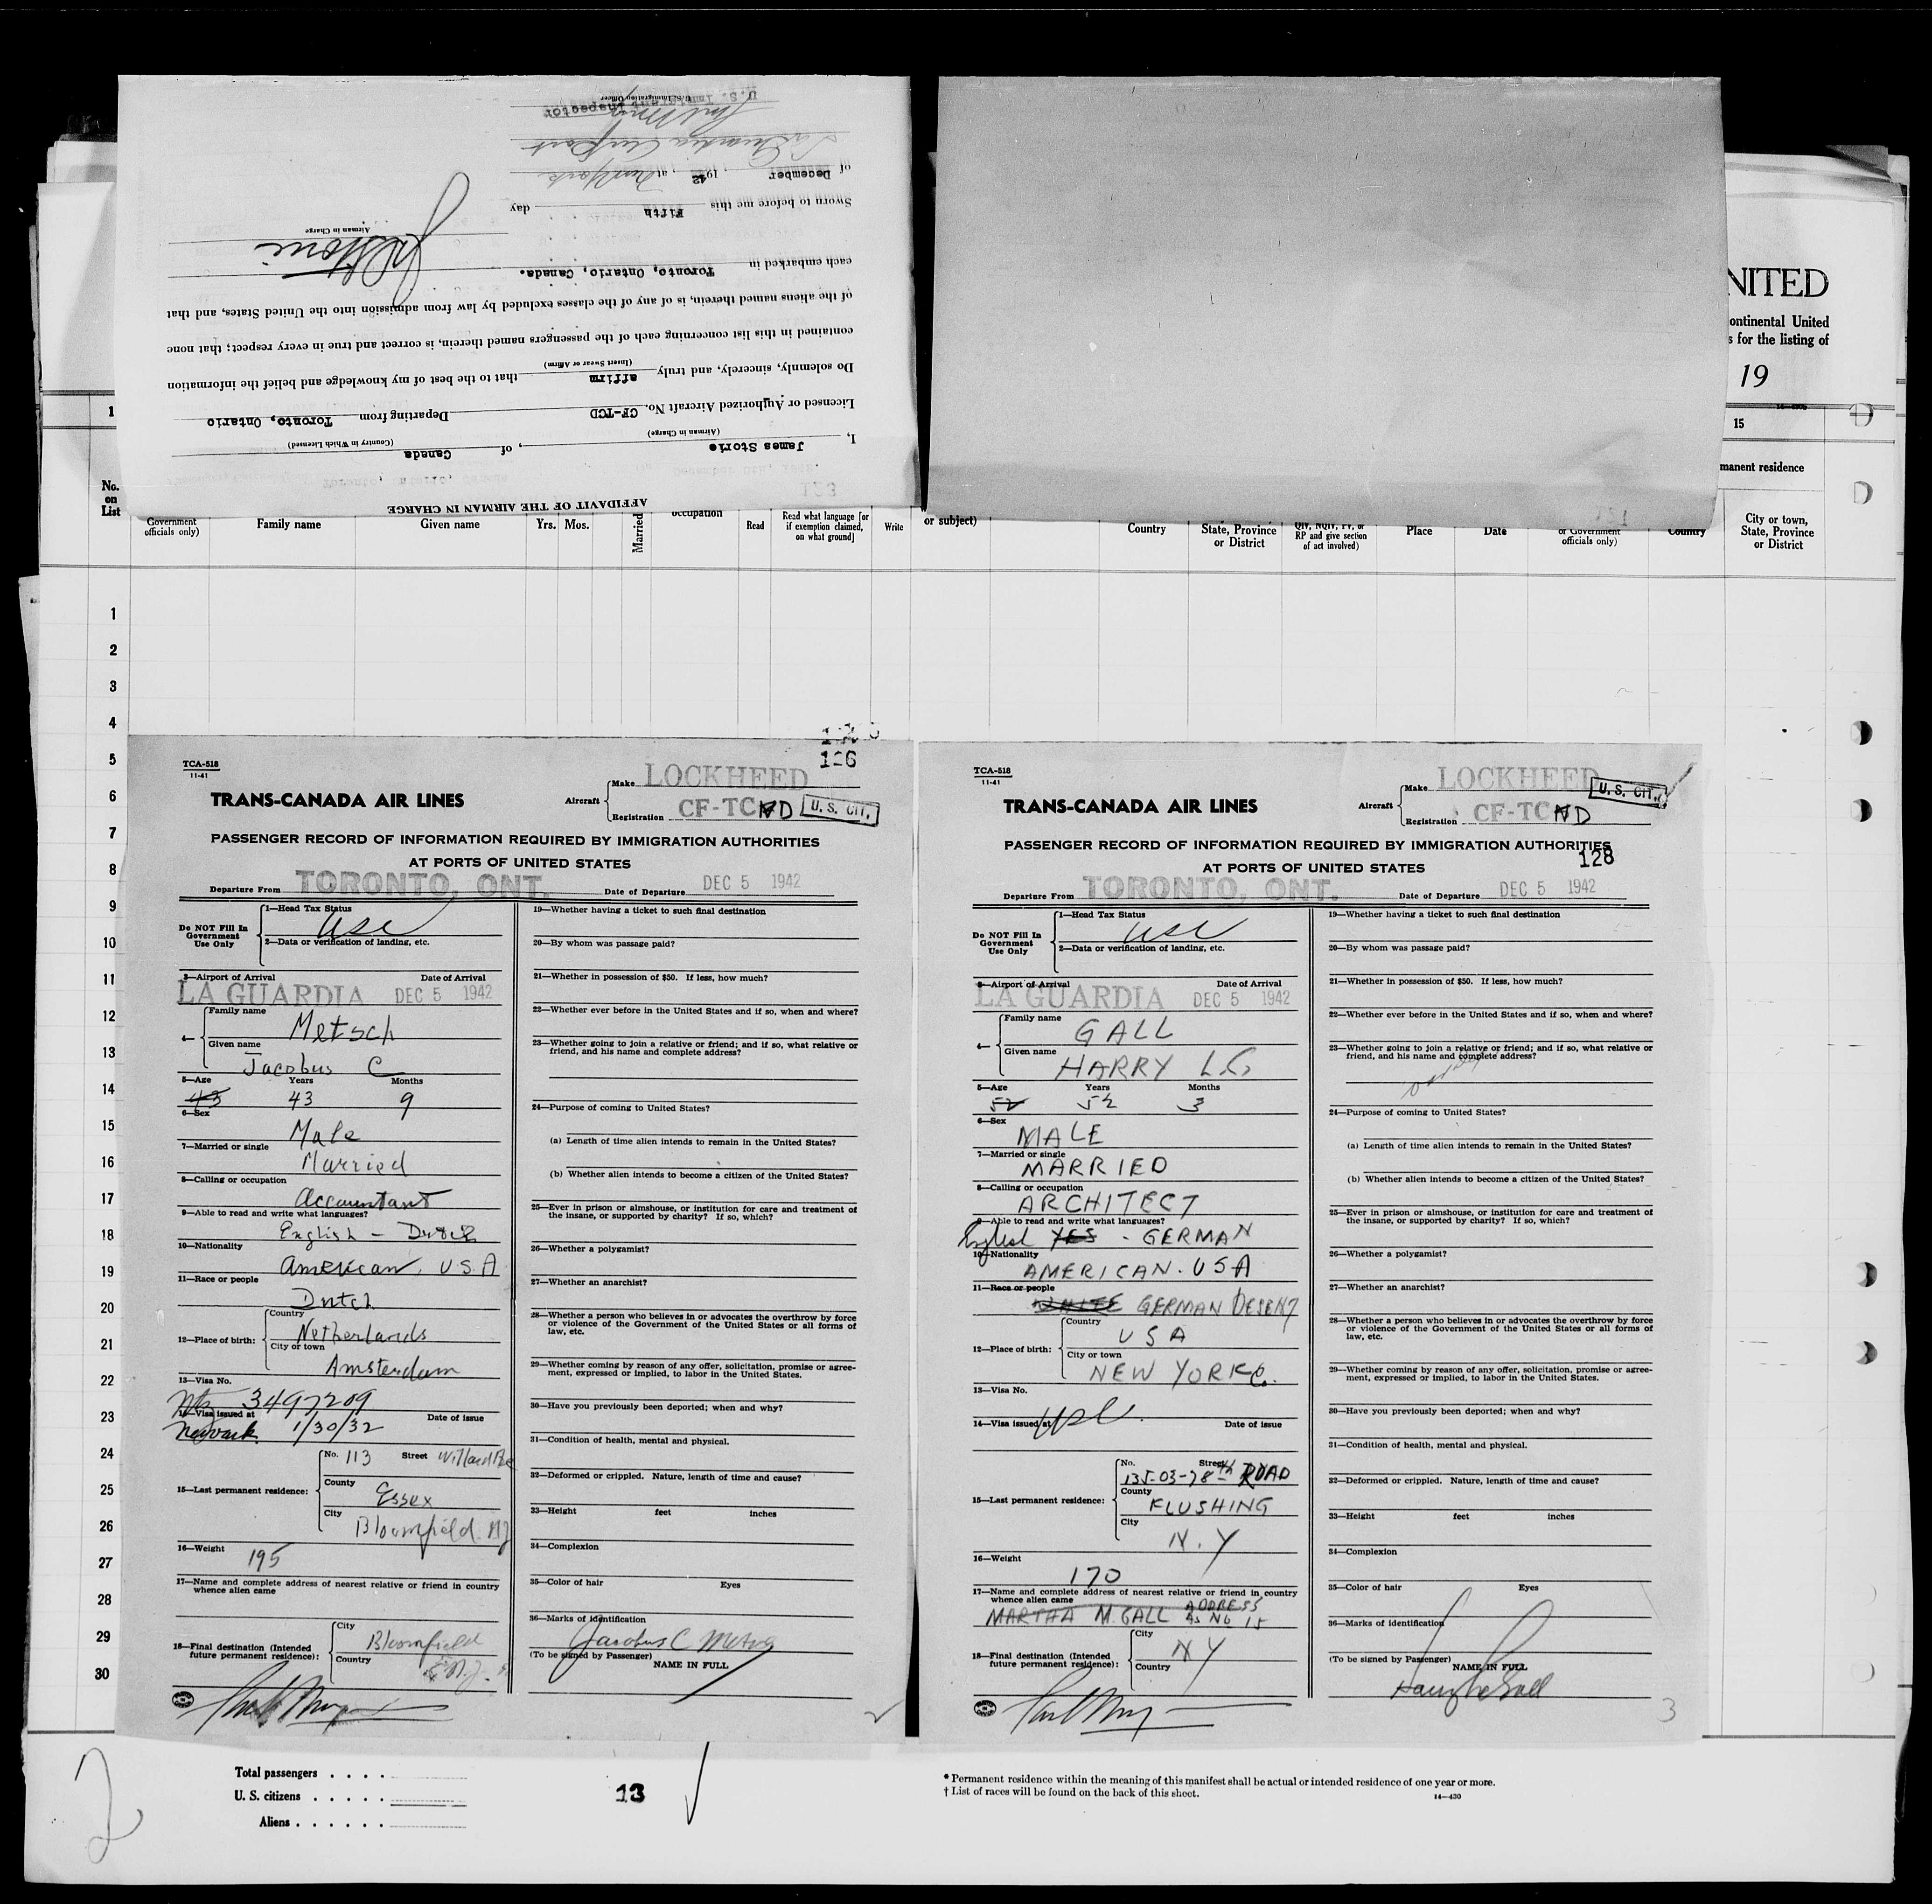 AFFIDAVIT OF THE AIRMAN IN CHARGE
I, James Storie, of Canada
(Airman in Charge) (Country in Which Licensed)
Licensed or Authorized Aircraft No. CF-TCD Departing from Toronto, Ontario
Do solemnly, sincerely, and truly affirm that to the best of my knowledge and belief the information
(Insert Swear or Affirm)
contained in this list concerning each of the passengers named therein, is correct and true in every respect; that none
of the aliens named therein, is of any of the classes excluded by law from admission into the United States, and that
each embarked in Toronto, Ontario, Canada.
Airman in Charge
Sworn to before me this Fifth day
of December, 1942, at New York
La Guardia Airport
U.S. Immigrant Inspector
U. S. Immigration Officer
NITED
ontinental United
s for the listing of
19
1
15
manent residence
No. on List
Government officials only)
Family name
Given name
Yrs. Mos.
Married
occupation
Read
Read what language [or if exemption claimed, on what ground]
Write
or subject)
Country
State, Province or District
QIV, NQIV, PV, or RP and give section of act involved)
Place
Date
or Government officials only)
Country
City or town, State, Province or District
1
2
3
4
5
6
7
8
9
10
11
12
13
14
15
16
17
18
19
20
21
22
23
24
25
26
27
28
29
30
126
TCA-518
11-41
TRANS-CANADA AIR LINES
Aircraft
Make LOCKHEED
Registration CF-TCD
U. S. CIT.
PASSENGER RECORD OF INFORMATION REQUIRED BY IMMIGRATION AUTHORITIES
AT PORTS OF UNITED STATES
Departure From TORONTO, ONT. Date of Departure DEC 5 1942
Do NOT Fill In Government Use Only
1—Head Tax Status
USC
2—Data or verification of landing, etc.
3—Airport of Arrival Date of Arrival
LA GUARDIA DEC 5 1942
4— Family name Metsch
Given name Jacobus C
5—Age Years Months
43 43 9
6—Sex
Male
7—Married or single
Married
8—Calling or occupation
Accountant
9—Able to read and write what languages?
English - Dutch
10—Nationality
American, USA
11—Race or people
Dutch
12—Place of birth: Country Netherlands
City or town Amsterdam
13—Visa No.
3497209
14—Visa issued at Date of issue
Newark 1/30/32
15—Last permanent residence: No. 113 Street Willard Ave
County Essex
City Bloomfield NJ
16—Weight 195
17—Name and complete address of nearest relative or friend in country whence alien came
18—Final destination (Intended future permanent residence): City Bloomfield
Country N.J.
19—Whether having a ticket to such final destination
20—By whom was passage paid?
21—Whether in possession of $50. If less, how much?
22—Whether ever before in the United States and if so, when and where?
23—Whether going to join a relative or friend; and if so, what relative or friend, and his name and complete address?
24—Purpose of coming to United States?
(a) Length of time alien intends to remain in the United States?
(b) Whether alien intends to become a citizen of the United States?
25—Ever in prison or almshouse, or institution for care and treatment of the insane, or supported by charity? If so, which?
26—Whether a polygamist?
27—Whether an anarchist?
28—Whether a person who believes in or advocates the overthrow by force or violence of the Government of the United States or all forms of law, etc.
29—Whether coming by reason of any offer, solicitation, promise or agreement, expressed or implied, to labor in the United States.
30—Have you previously been deported; when and why?
31—Condition of health, mental and physical.
32—Deformed or crippled. Nature, length of time and cause?
33—Height feet inches
34—Complexion
35—Color of hair Eyes
36—Marks of identification
Jacobus C Metsch
(To be signed by Passenger) NAME IN FULL
TCA-518
11-41
TRANS-CANADA AIR LINES
Aircraft
Make LOCKHEED
Registration CF-TCD
U. S. CIT.
PASSENGER RECORD OF INFORMATION REQUIRED BY IMMIGRATION AUTHORITIES
128
AT PORTS OF UNITED STATES
Departure From TORONTO, ONT. Date of Departure DEC 5 1942
Do NOT Fill In Government Use Only
1—Head Tax Status
USC
2—Data or verification of landing, etc.
3—Airport of Arrival Date of Arrival
LA GUARDIA DEC 5 1942
4— Family name GALL
Given name HARRY L.C.
5—Age Years Months
52 52 3
6—Sex
MALE
7—Married or single
MARRIED
8—Calling or occupation
ARCHITECT
9—Able to read and write what languages?
English YES - GERMAN
10—Nationality
AMERICAN. USA
11—Race or people
WHITE GERMAN DESENT
12—Place of birth: Country USA
City or town NEW YORK C.
13—Visa No.
14—Visa issued at Date of issue
USC
15—Last permanent residence: No. Street 135-03-78th ROAD
County FLUSHING
City N.Y
16—Weight
170
17—Name and complete address of nearest relative or friend in country whence alien came
MARTHA M. GALL ADDRESS AS NO 15
18—Final destination (Intended future permanent residence): City NY
Country
19—Whether having a ticket to such final destination
20—By whom was passage paid?
21—Whether in possession of $50. If less, how much?
22—Whether ever before in the United States and if so, when and where?
23—Whether going to join a relative or friend; and if so, what relative or friend, and his name and complete address?
24—Purpose of coming to United States?
(a) Length of time alien intends to remain in the United States?
(b) Whether alien intends to become a citizen of the United States?
25—Ever in prison or almshouse, or institution for care and treatment of the insane, or supported by charity? If so, which?
26—Whether a polygamist?
27—Whether an anarchist?
28—Whether a person who believes in or advocates the overthrow by force or violence of the Government of the United States or all forms of law, etc.
29—Whether coming by reason of any offer, solicitation, promise or agreement, expressed or implied, to labor in the United States.
30—Have you previously been deported; when and why?
31—Condition of health, mental and physical.
32—Deformed or crippled. Nature, length of time and cause?
33—Height feet inches
34—Complexion
35—Color of hair Eyes
36—Marks of identification
(To be signed by Passenger) NAME IN FULL
Harry L C Gall
3
2
Total passengers . . . .
U. S. citizens . . . . .
Aliens . . . . . .
13
* Permanent residence within the meaning of this manifest shall be actual or intended residence of one year or more.
† List of races will be found on the back of this sheet.
14—430